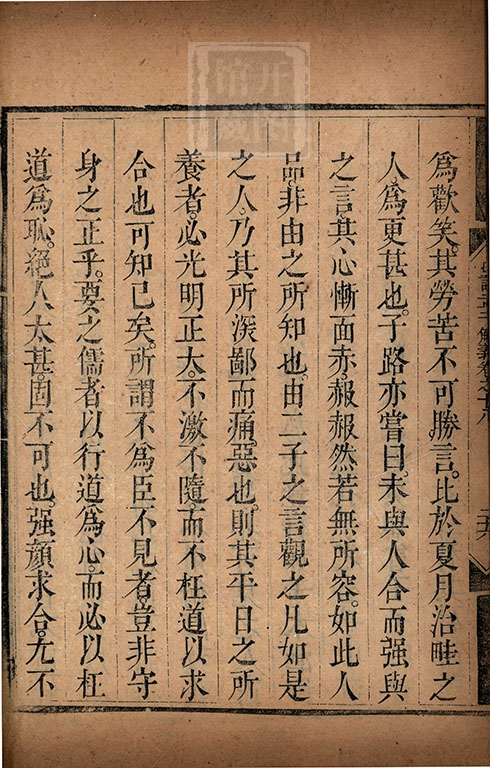 為歡笑。其勞苦不可勝言。比於夏月治畦之
人。為更甚也。子路亦嘗曰。未與人合而强與
之言。其心慚面赤。赧赧然若無所容。如此人
品。非由之所知也。由二子之言觀之。凡如是
之人。乃其所深鄙而痛惡也。則其平日之所
養者。必光明正大。不激不隨。而不枉道以求
合也可知已矣。所謂不為臣不見者。豈非守
身之正乎。要之儒者以行道為心。而必以枉
道為恥。絕人太甚。固不可也。强顏求合。尤不